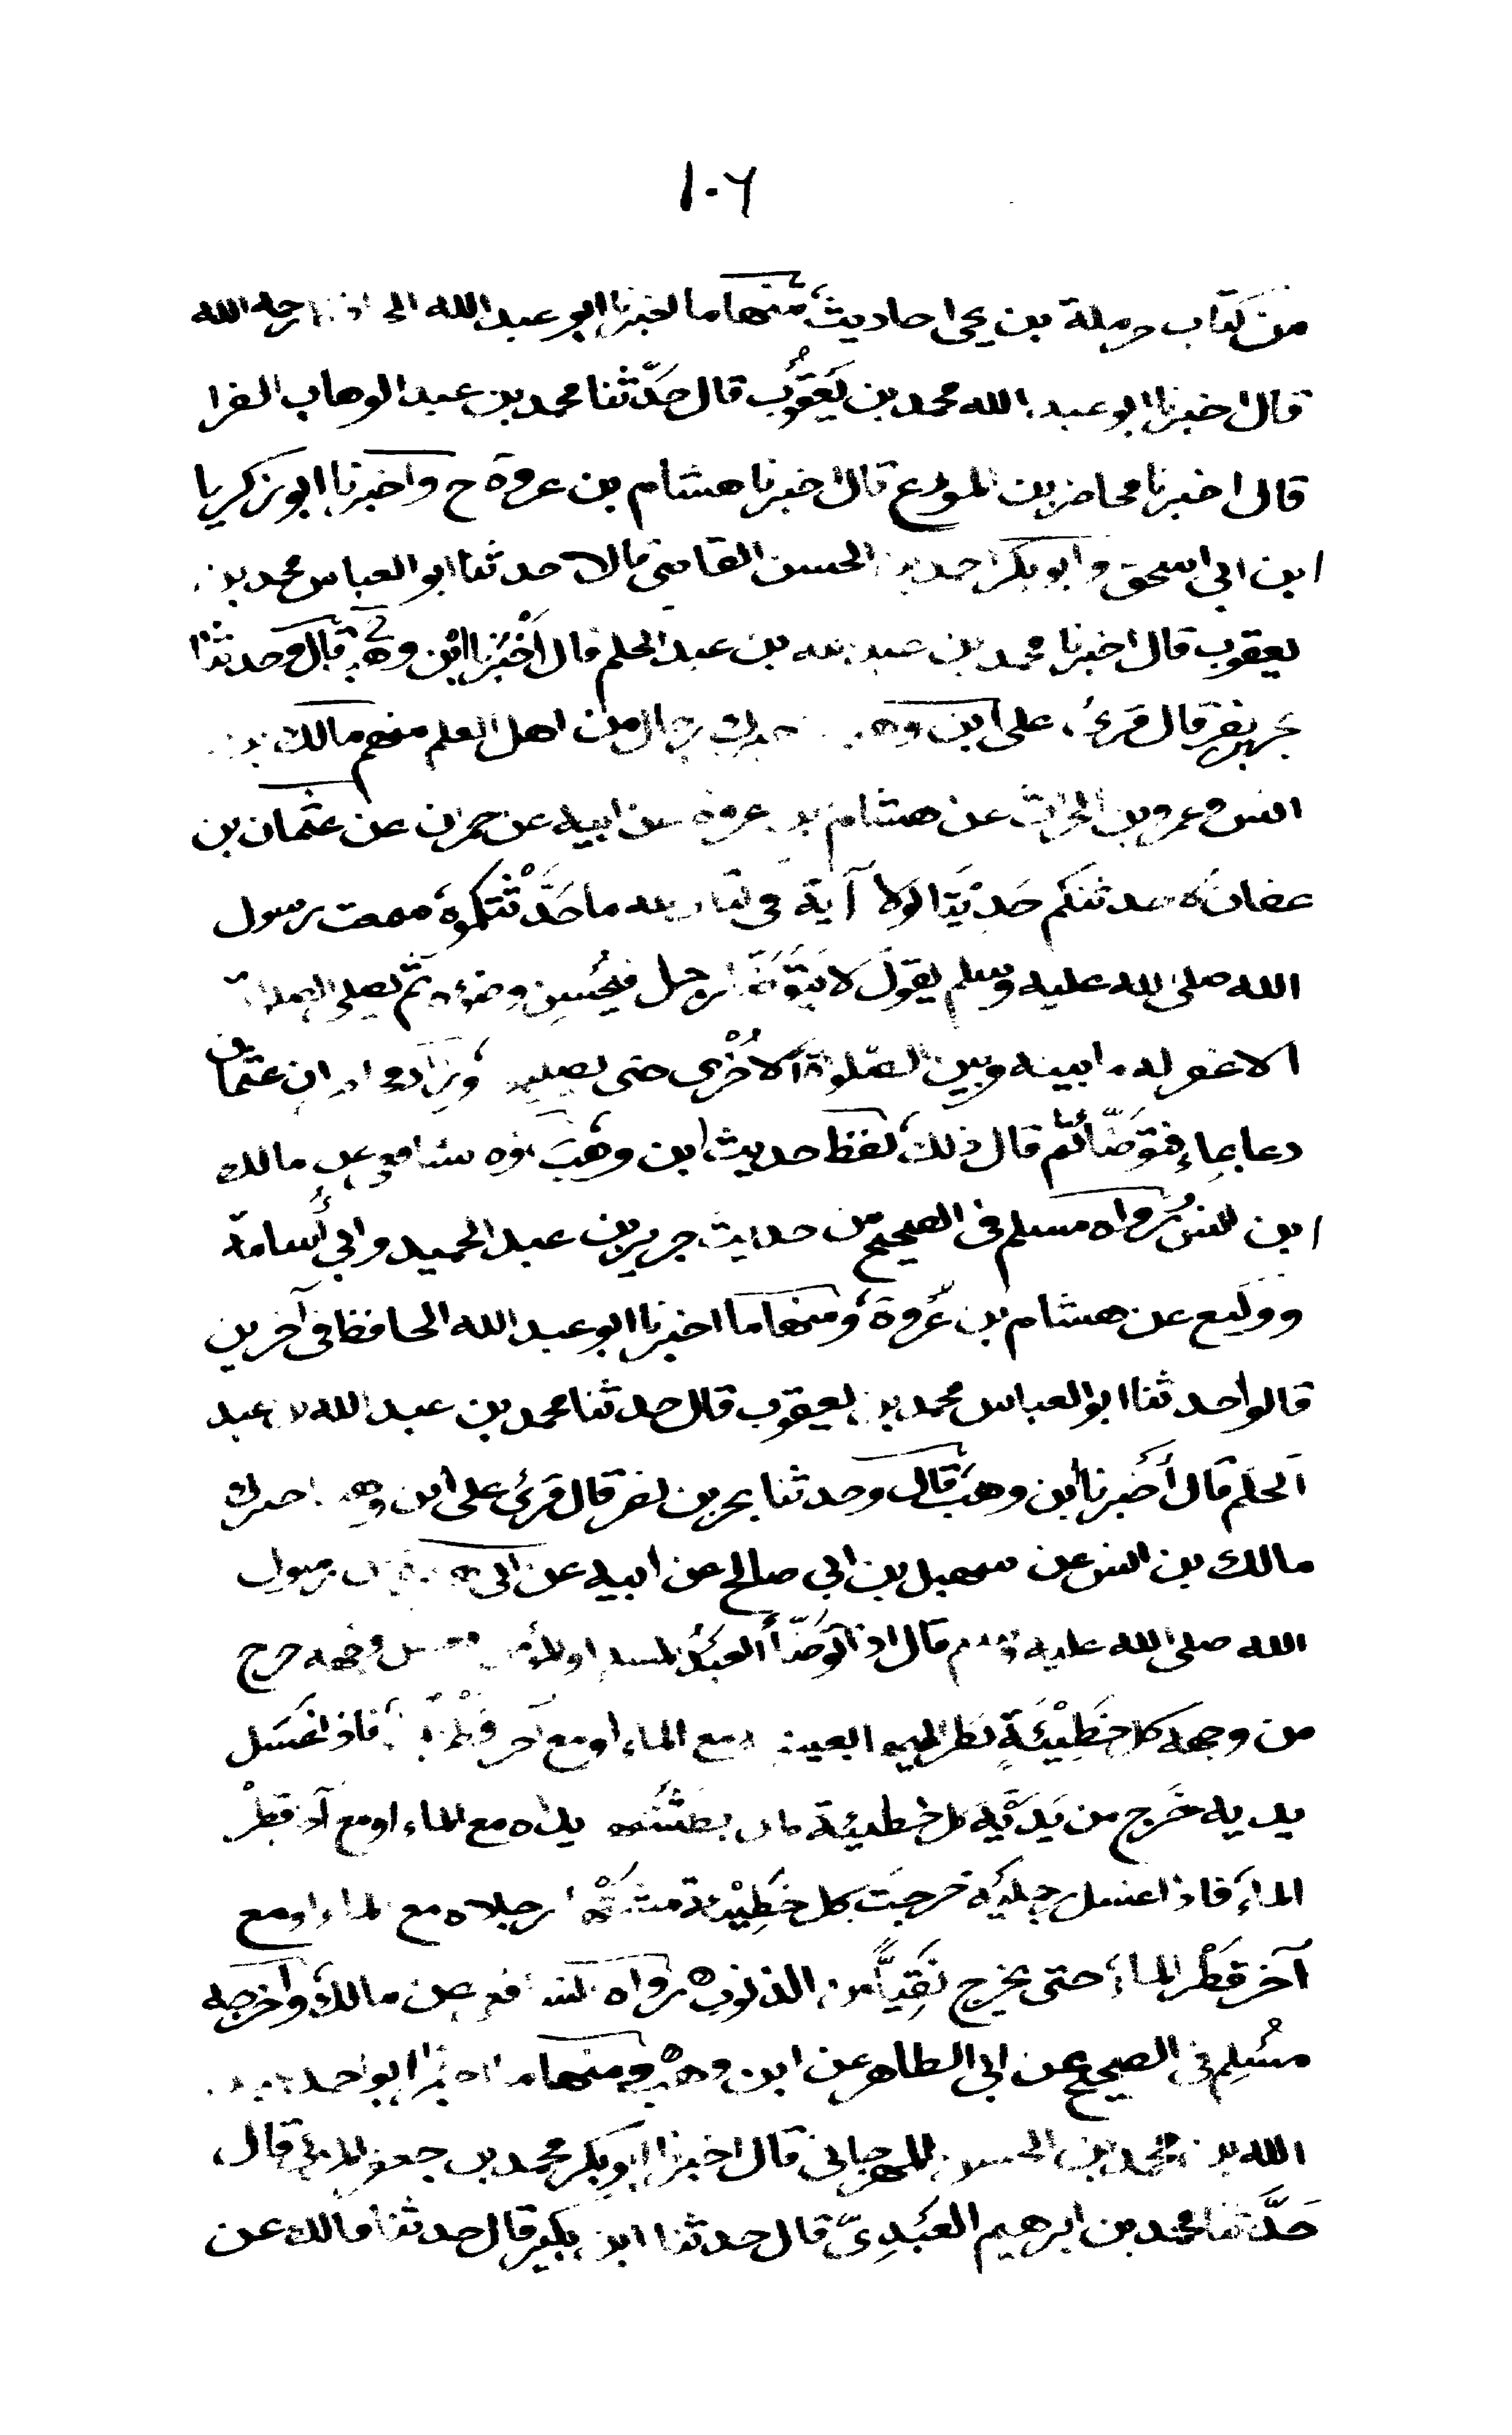 ١٠٦
من كتاب حرملة بن يحيى احاديث منها ما اخبرنا ابو عبد الله رحمه الله
قال اخبرنا ابو عبد الله محمد بن يَعقُوب قال حدّثنا محمد بن عبد الوهاب الفرا
قال اخبرنا محاضر بن المورع قال اخبرنا هشام بن عروة ح واخبرنا ابو زكريا
ابن ابي اسحق وابو بكر احمد بن الحسن القاضي قالا حدثنا ابو العباس محمد بن
يعقوب قال اخبرنا محمد بن عبد الله بن عبد الحكم قال أخْبَرنا ابْن وهب قال وحدثنا
بحر بن نصر قال قرئ على ابن وهب رجال من اهل العلم منهم مالك بن
انس وعمرو بن الحرث عن هشام بن عروة عن ابيه عن حمران عن عثمان بن
عفان حدثتكم حَديثا لولا آية في ما حَدَّثْتكموه سمعت رسول
الله صلى الله عليه وسلم يقول لا يتوضأ رجل فيُحسِن وضوءه ثم يصلي الصلاة
الا غفر له ما بينه وبين الصّلوة الاخْرى حتى يصليها ان عثمان
دعا بماء فتوَضّأ ثم قال ذلك لفظ حديث ابن وهَب رواه الشافعي عن مالك
ابن انس ورواه مسلم في الصحيح من حديث جرير بن عبد الحميد وابي أسامة
ووكيع عن هشام بن عُروة ومنها ما اخبرنا ابو عبد الله الحافظ في آخرين
قالوا حدثنا ابو العباس محمد بن يعقوب قال حدثنا محمد بن عبد الله بن عبد
الحكم قال أخبرنا ابن وهب قال وحدثنا بحر بن نصر قال قرئ على ابن وهب اخبرك
مالك بن انس عن سهيل بن ابي صالح عن ابيه عن ابي رسول
الله صلى الله عليه وسلم قال اذا توَضّأ العَبدُ المسلم او المؤمن وجهه خرج
من وجهه كل خَطِيْئَةٍ نظر اليها بعينه مع الماء او مع آخر فاذا غَسَل
يديه خَرج من يَدَيْه كل خطيئة بطشتها يداه مع الماء او مع آخر قطْر
الماءِ فاذا غسل رجليْه خرجَت كل خَطِيْئة مشتها رجلاه مع الماء او مع
آخر قَطْر الماء حتى يخرج نَقِيًّا من الذنوب رواه الشافعي عن مالك واخرجه
مسْلم في الصحيح عن ابي الطاهر عن ابن وهب ومنها ما اخبرنا ابو احمد
الله بن محمد بن الحسن المهرجاني قال اخبرنا ابو بكر محمد بن جعفر المزكي قال
حَدَّثنا محمد بن ابرهيم العَبْدِىّ قال حدثنا ابن بكير قال حدثنا مالك عن